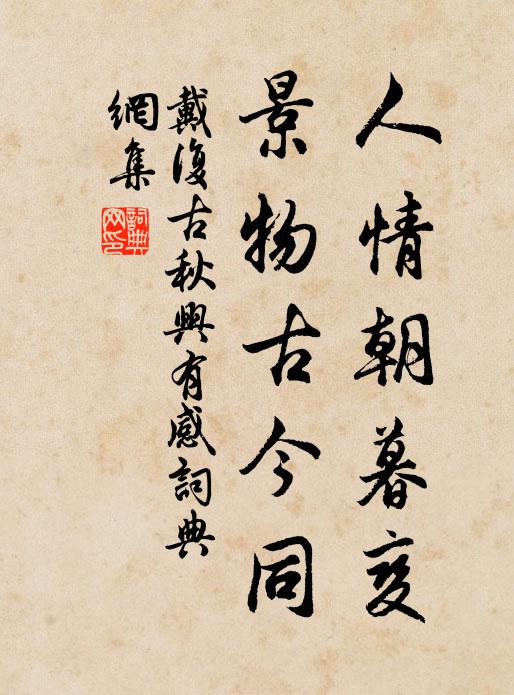 人情朝暮变
景物古今同
戴復古秋興有感詞典
網集
詞典
网印